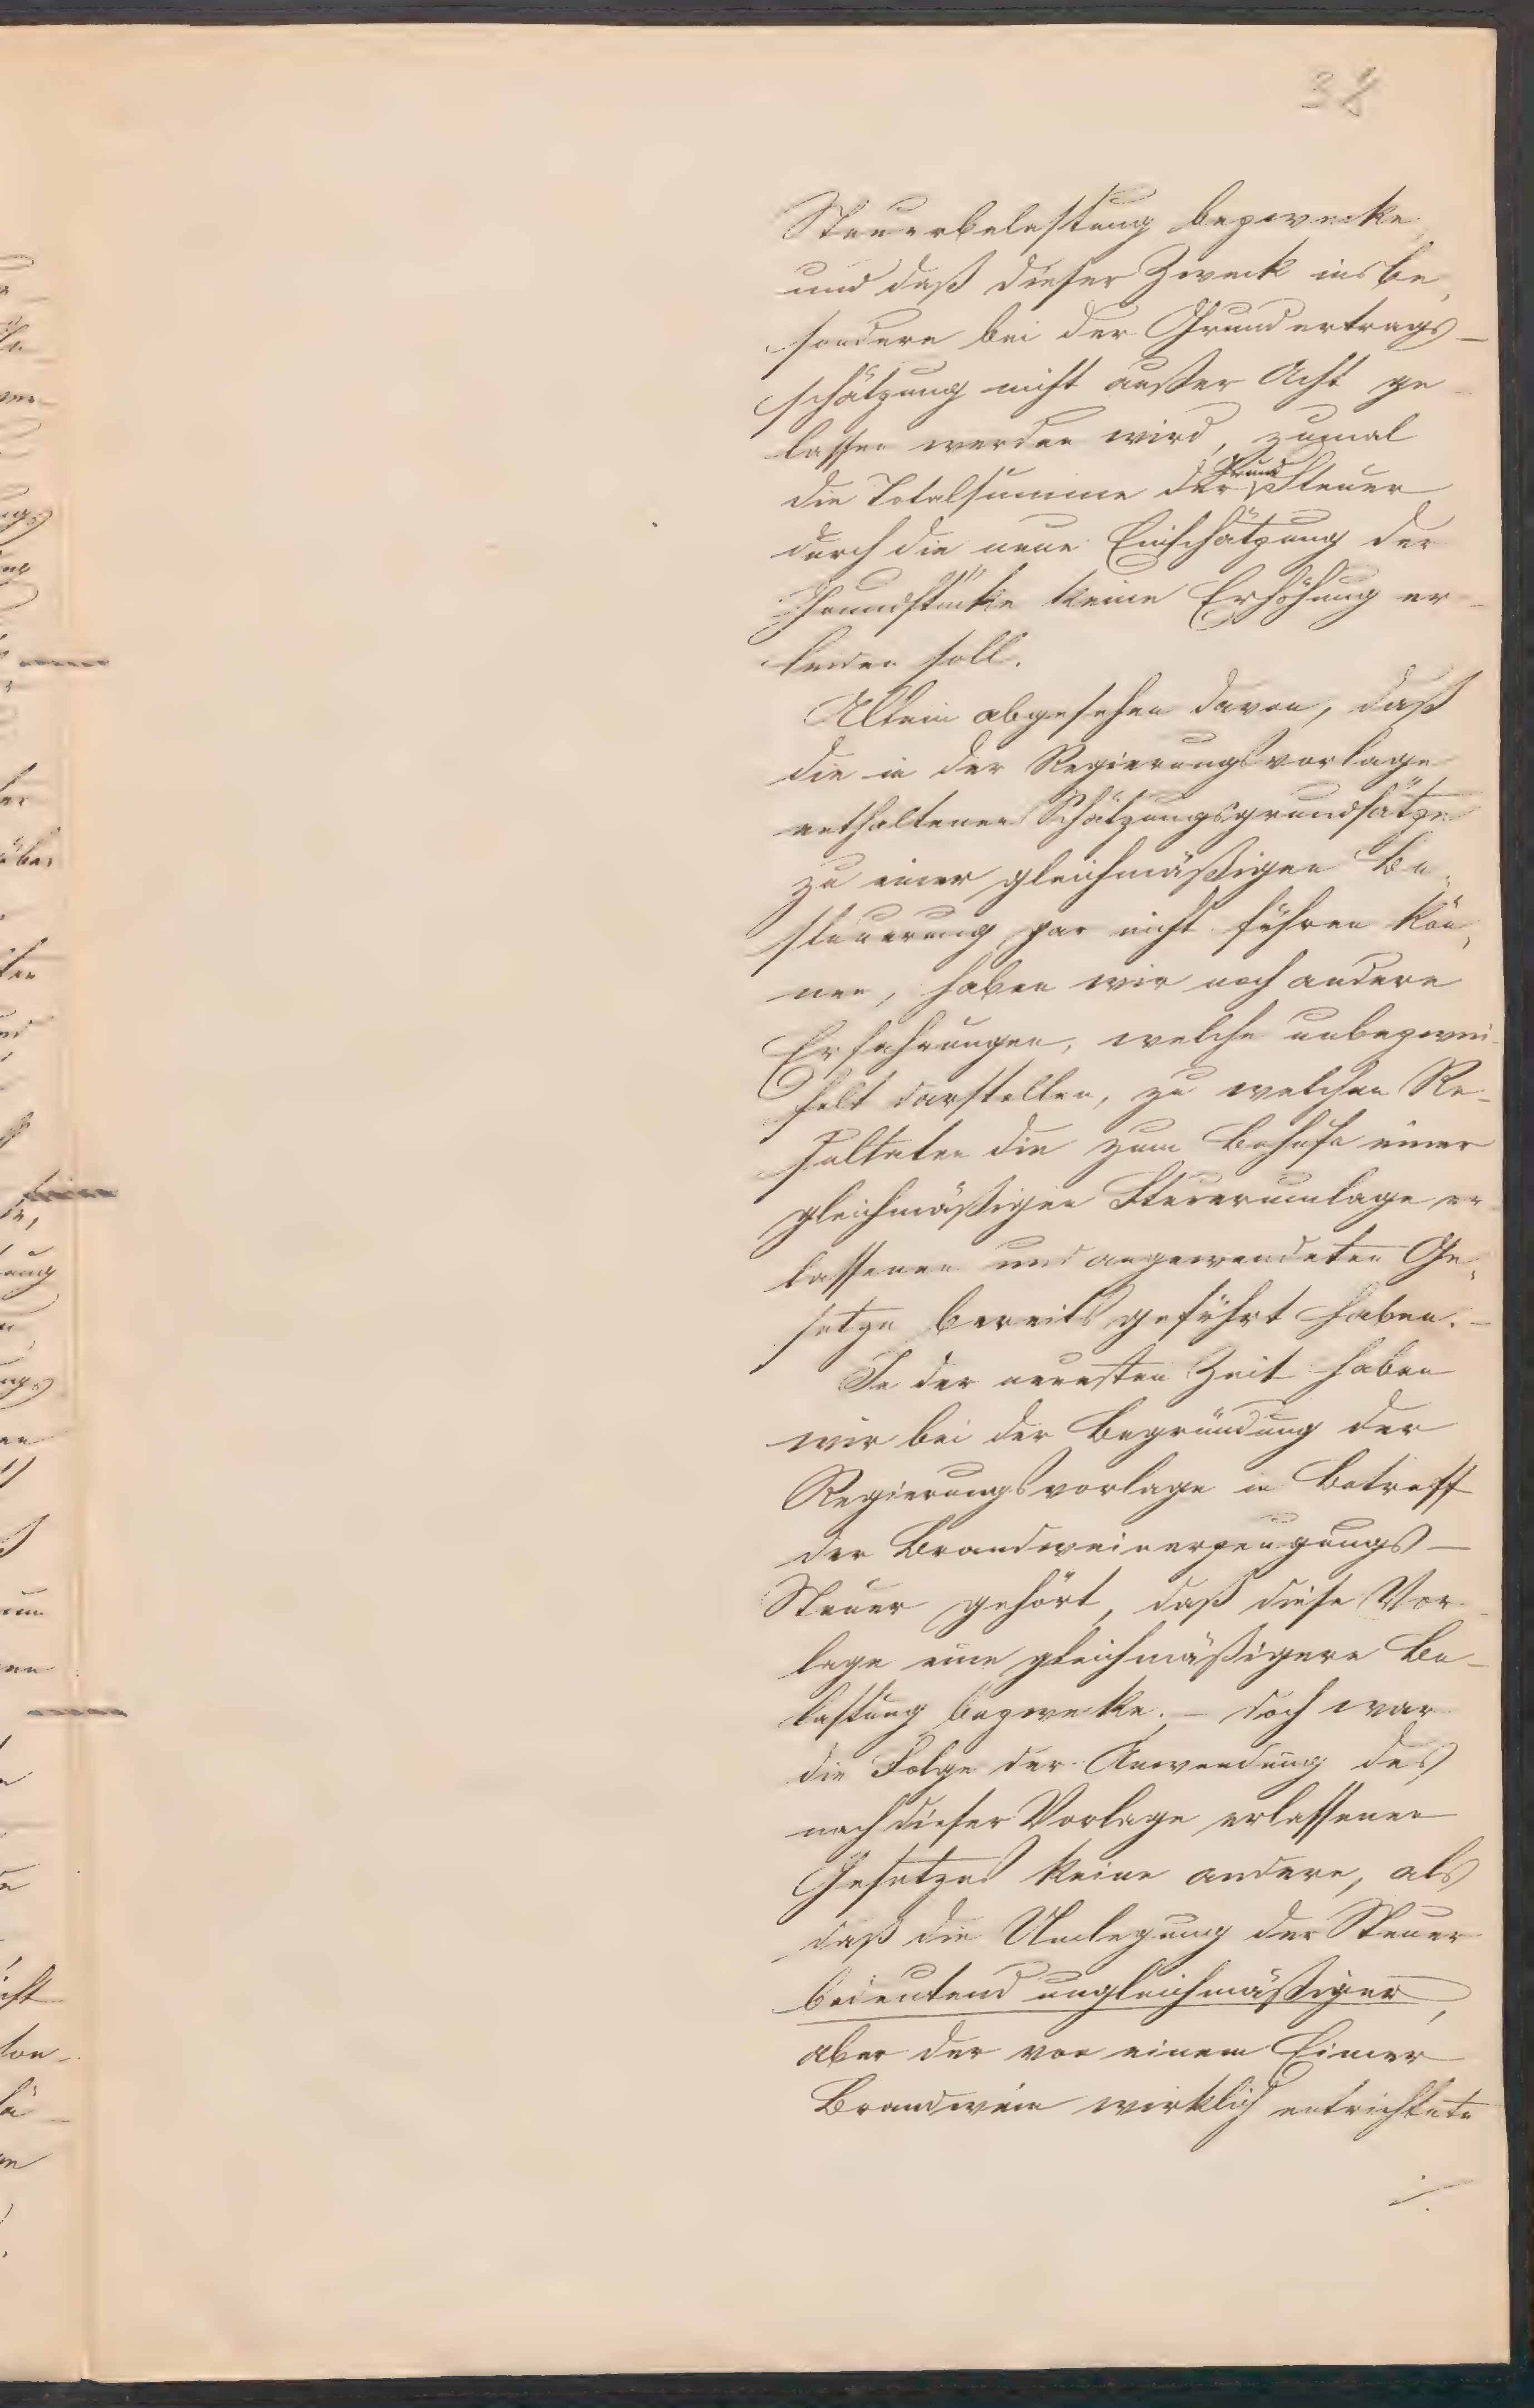 38
Steuerbelastung bezwecke,
und daß dieser Zweck insbe,
sondere bei der Grundertrags-
schätzung nicht außer Acht ge-
lassen werden wird, zumal
die Totalsumme der Grund Steuer
durch die neue Einschätzung der
Grundstücke keine Erhöhung er-
leiden soll.
Allein abgesehen davon, daß
die in der Regierungsvorlage
enthaltenen Schätzungsgrundsätze
zu einer gleichmäßigen Be-
steuerung gar nicht führen kön,
nen, haben wir noch andere
Erfahrungen, welche unbezwei-
felt darstellen, zu welchen Re-
sultaten die zum Behufe einer
gleichmäßigen Steuerumlage er-
lassenen und angewendeten Ge,
setze bereits geführt haben. -
In der neuesten Zeit haben
wir bei der Begründung der
Regierungsvorlage in Betreff
der Brandweinerzeugungs-
Steuer gehört, daß diese Vor-
lage eine gleichmäßigere Be-
lastung bezwecke. - doch war
die Folge der Anwendung des
nach dieser Vorlage erlassenen
Gesetzes keine andere, als
daß die Umlegung der Steuer
bedeutend ungleichmäßiger,
aber der von einem Eimer
Brandwein wirklich entrichtete
./.